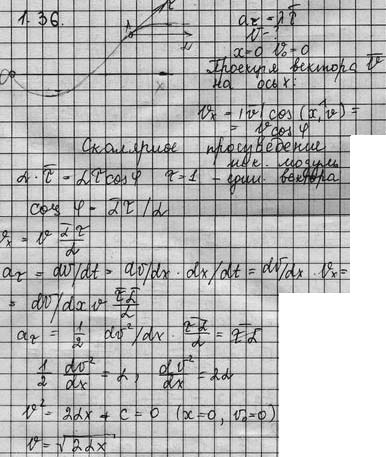 1.36.
A
O
x
a_τ = 2τ̄
v̄ - ?
x=0 v₀=0
Проекция вектора v̄
на ось x:
v_x = |v| cos(x,^v) =
= v cos φ
Скалярное произведение
α·τ̄ = ατ cos φ τ=1 - един. вектора
cos φ = ᾱτ̄/α
v_x = v ᾱτ̄/α
a_τ = dv/dt = dv/dx · dx/dt = dv/dx · v_x =
= dv/dx v τ̄ᾱ/α
a_τ = 1/2 dv²/dx · τ̄ᾱ/α = τ̄ᾱ
1/2 dv²/dx = α, dv²/dx = 2α
v² = 2αx + c = 0 (x=0, v₀=0)
v = √2αx